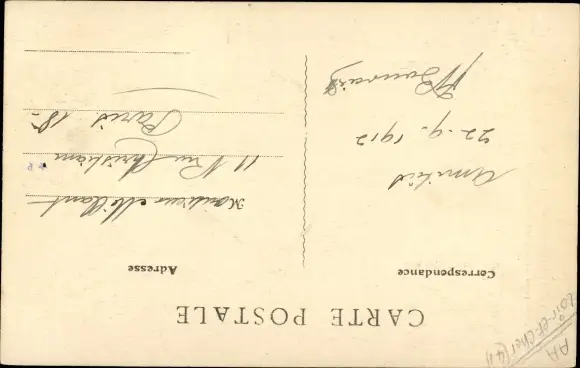 CARTE POSTALE
Correspondance
Adresse
Amitiés
22-9-1912
Monsieur
11 Rue Christiani
Paris 18e
AA
Loir-et-Cher (41)